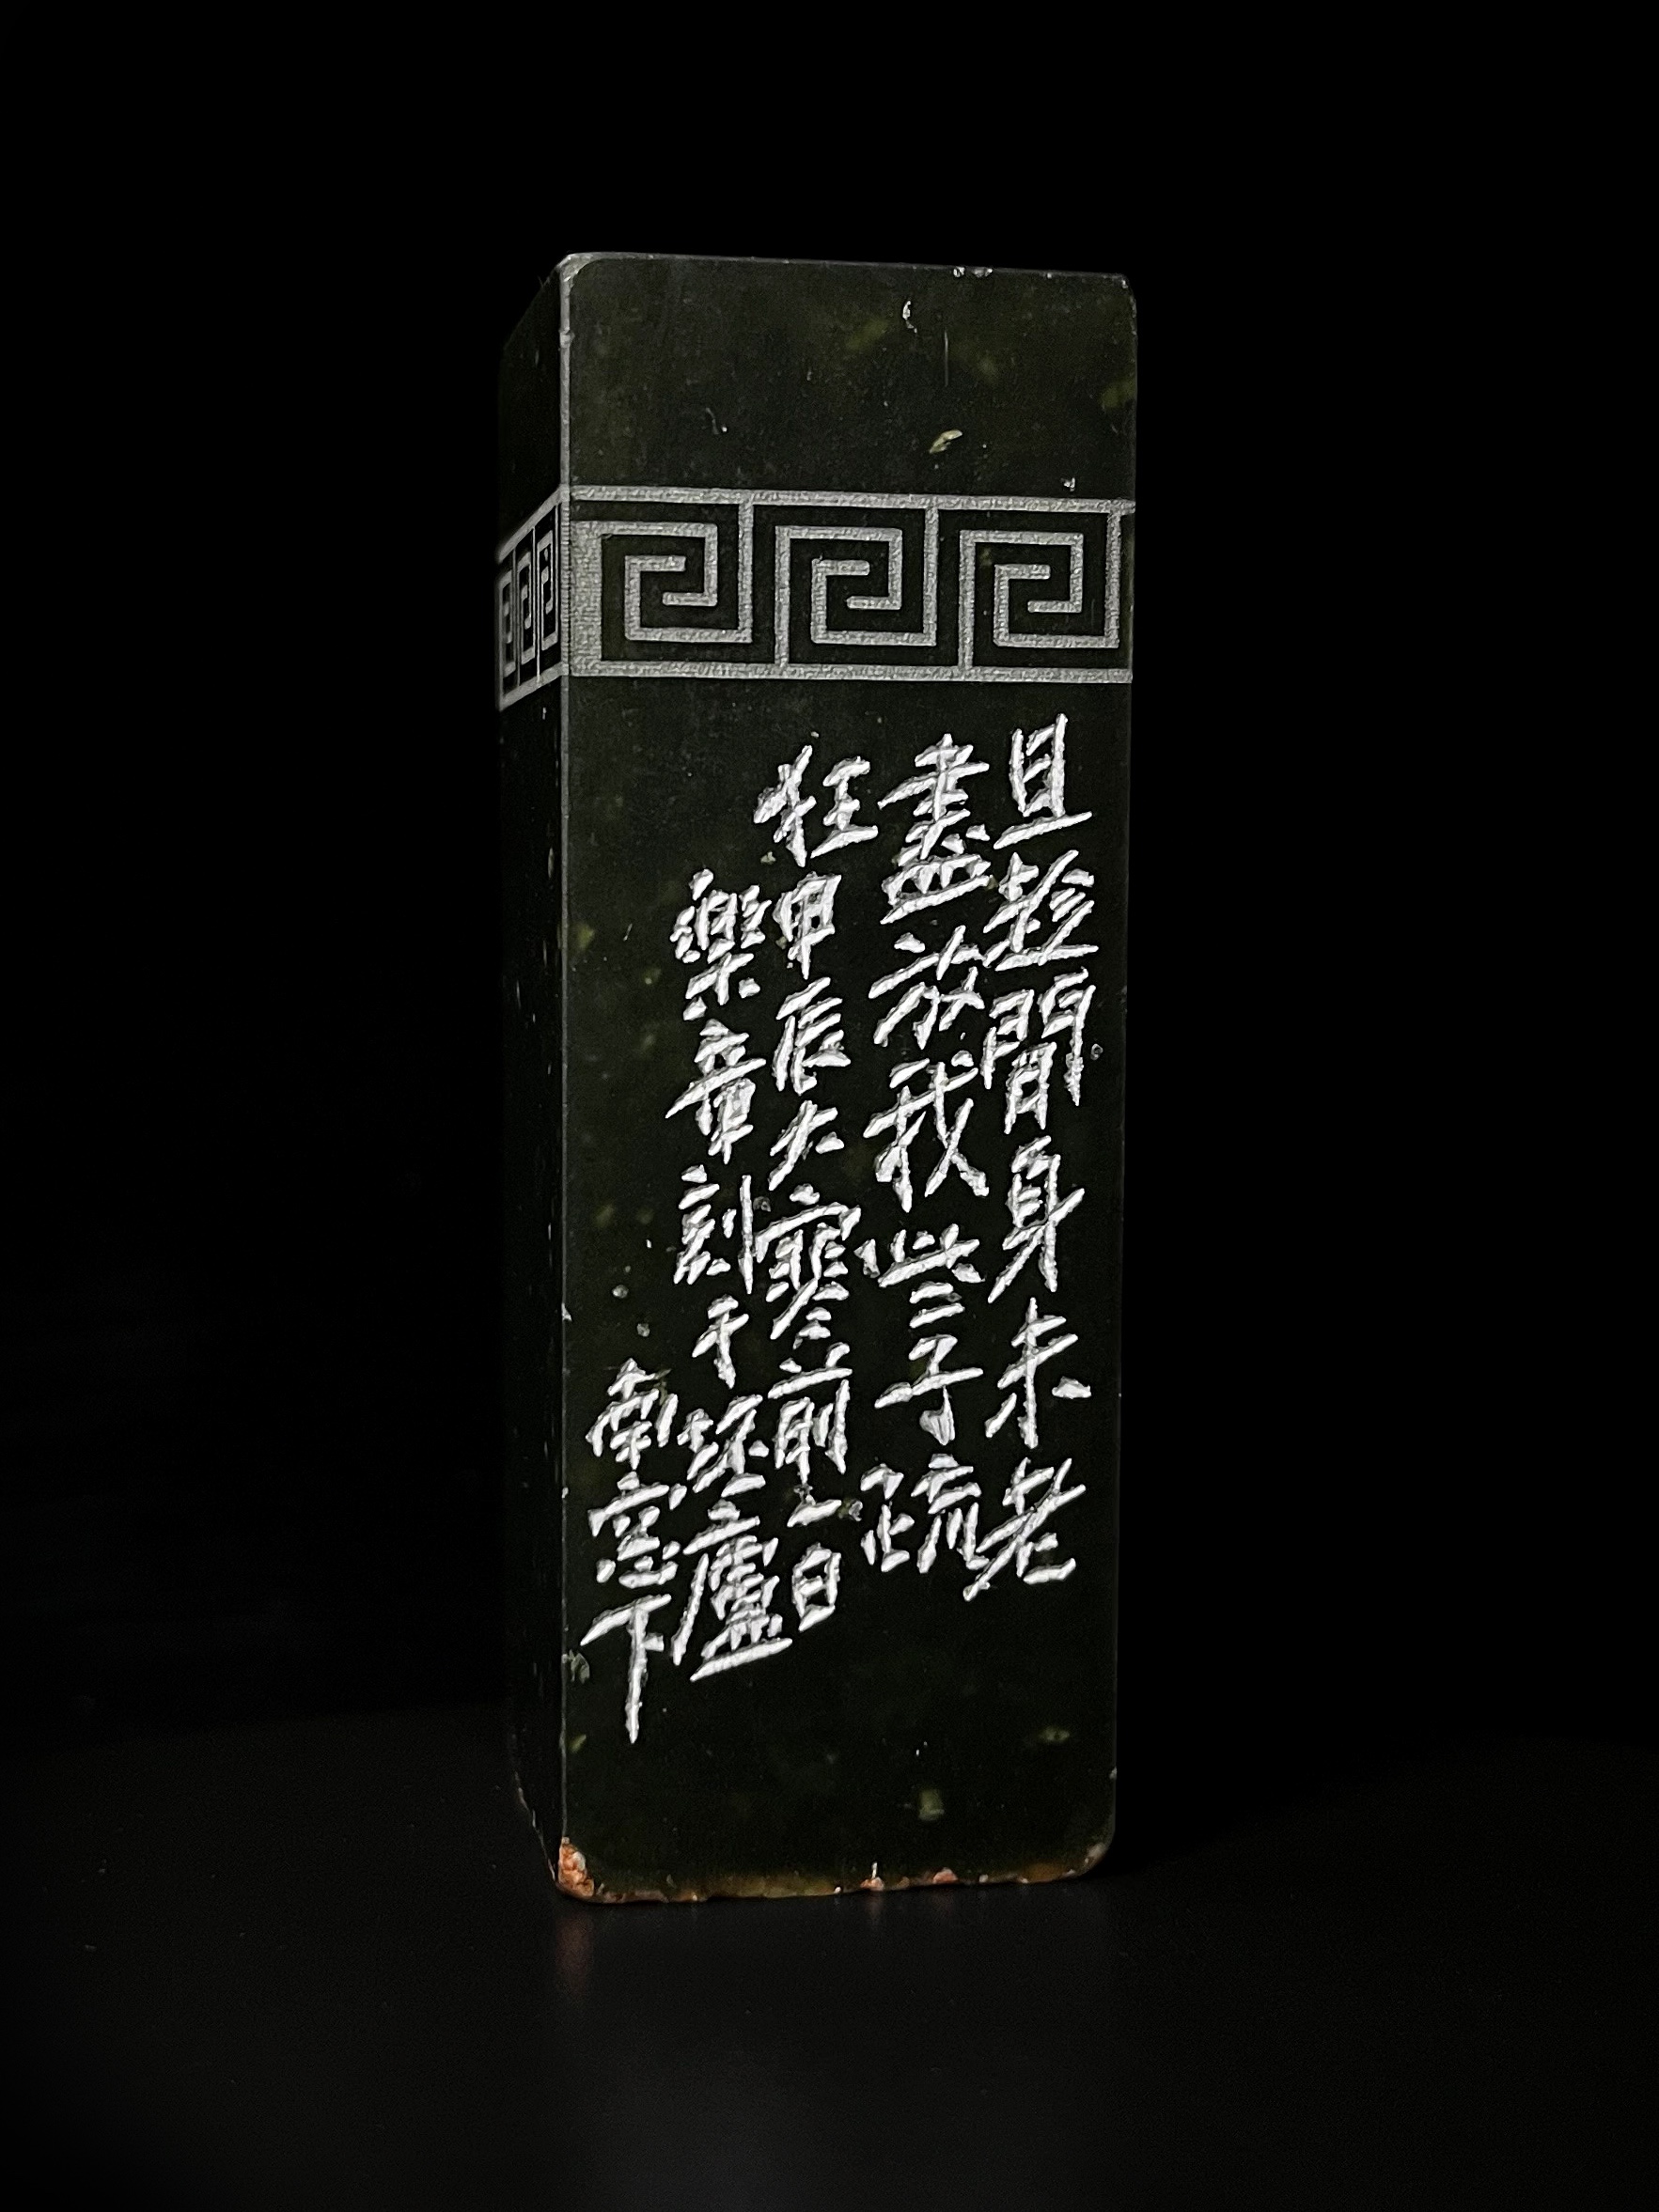 且趁閒身未老
盡放我些子疏
狂甲辰大寒前一日
樂章刻于坯廬
南窓下